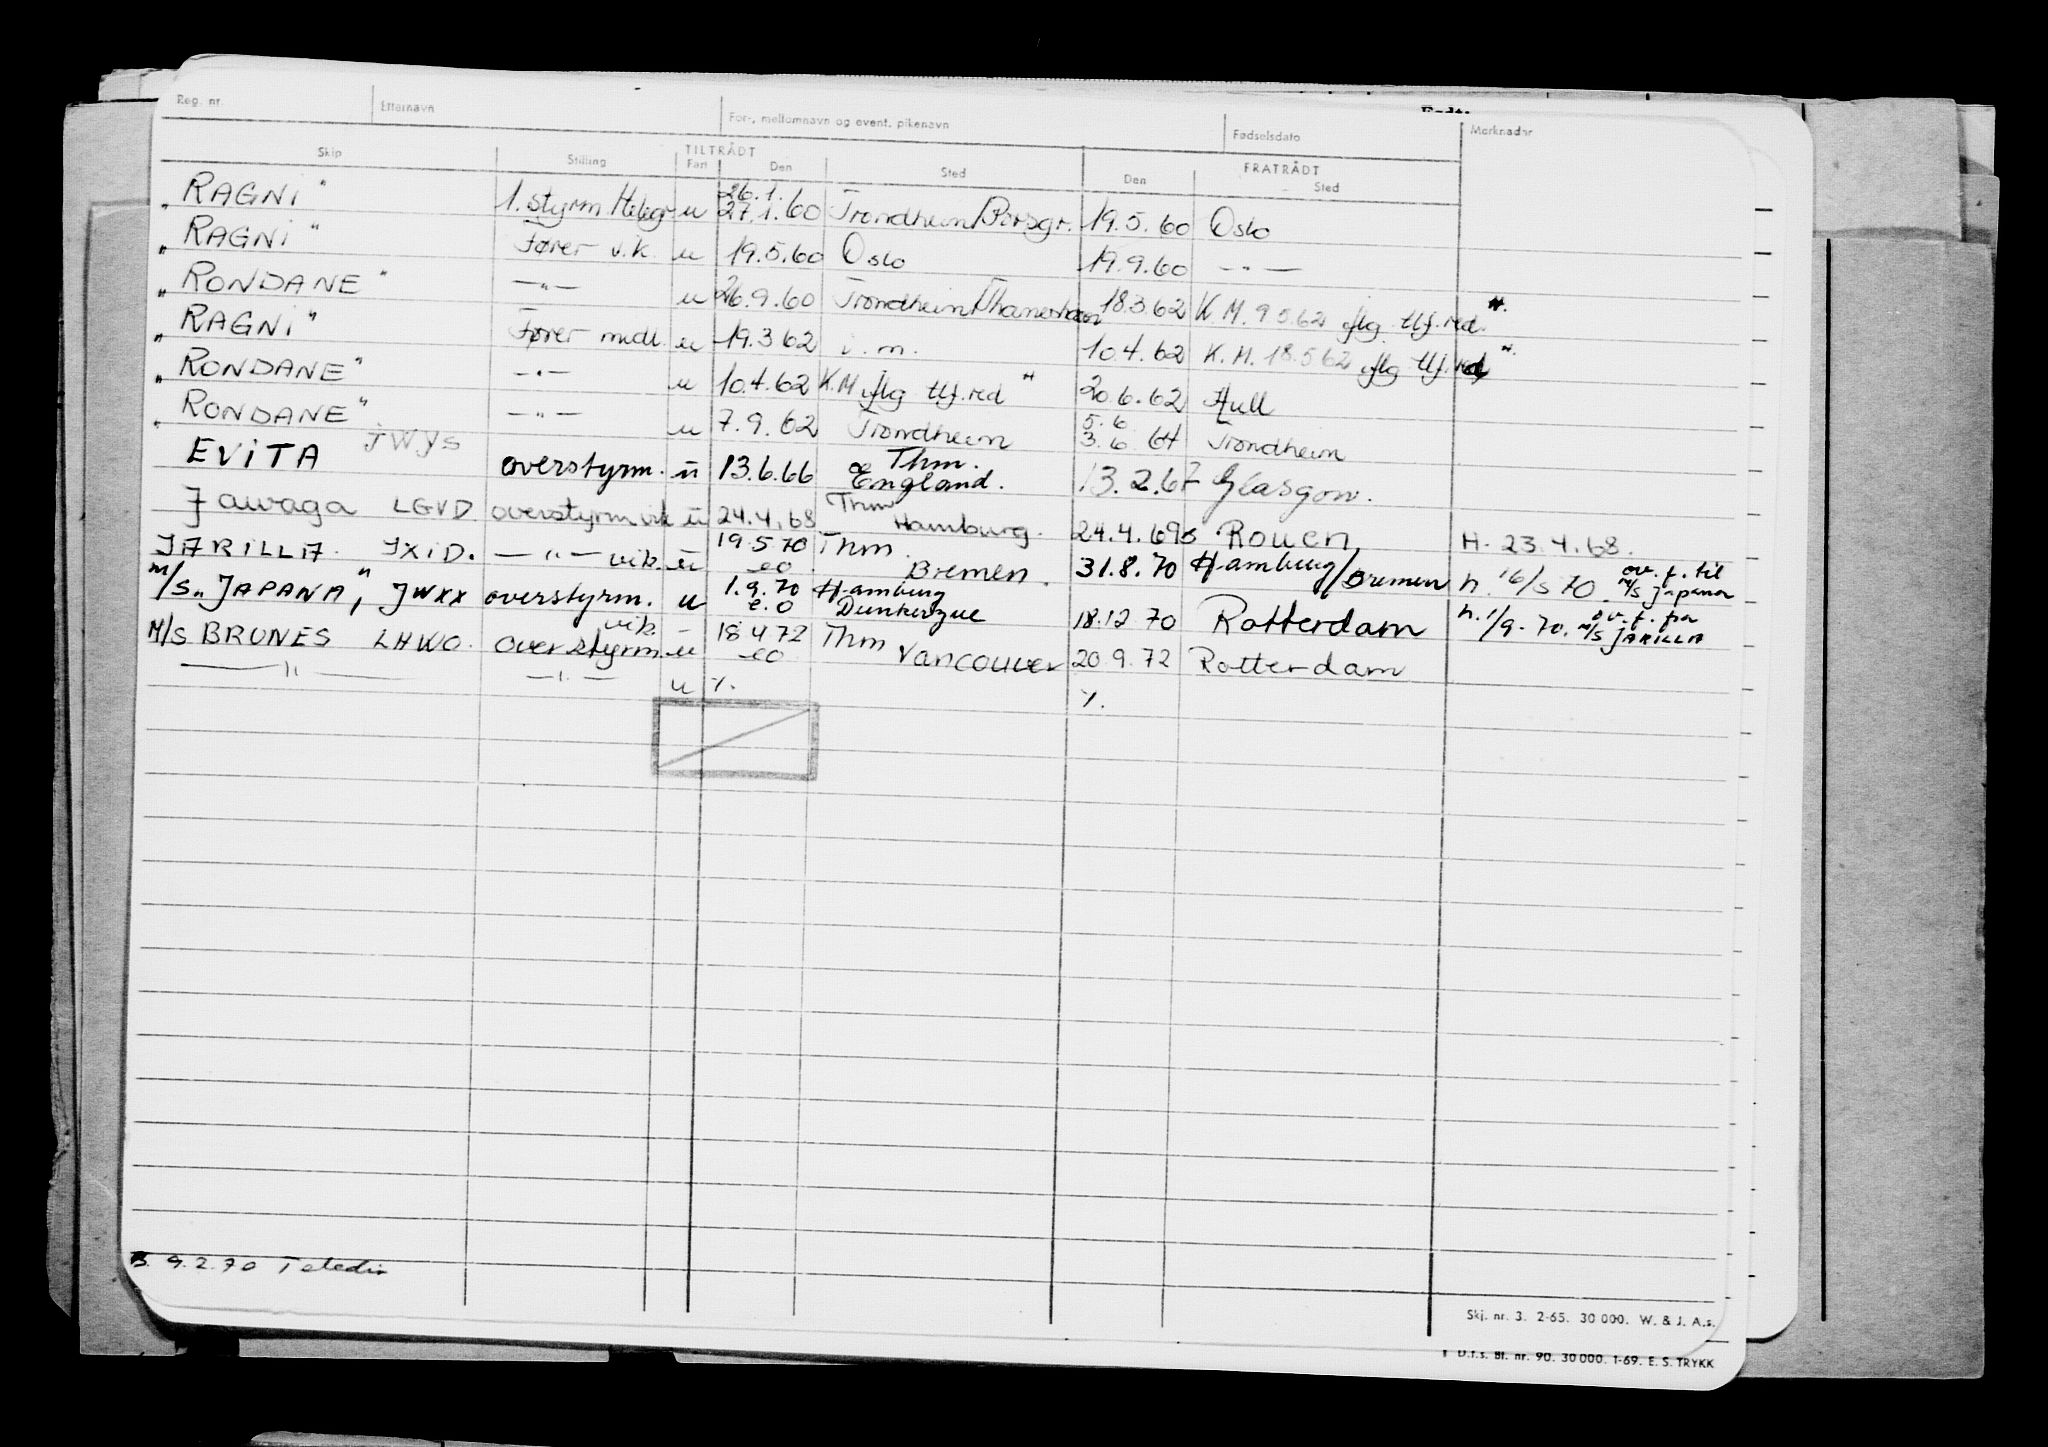 Reg. nr. Etternavn For-, mellomnavn og event. pikenavn Fødselsdato Merknader
Skip Stilling TILTRÅDT FRATRÅDT
Fart Den Sted Den Sted
26.1.
„ RAGNi " 1. styrm u 27.1.60 Trondheim/Porsgr. 19.5.60 Oslo
„ RAGNi " Fører vik. u 19.5.60 Oslo 19.9.60 — " —
„ RONDANE " — " — u 26.9.60 Trondheim/ 18.3.62 K M. 9 5.62 iflg tlf.red. "
„ RAGNi " Fører midl. u 19.3 62 i. m. 10.4.62 K. M. 18.5 62 iflg tlf.red "
„ RONDANE " — " — u 10.4.62 K.M iflg tlf.red " 20.6.62 Hull
„ RONDANE " — " — u 7.9.62 Trondheim 5.6 3.6 64 Trondheim
EViTA JWYS overstyrm. u 13.6.66 Thm. England. 13.2.67 Glasgow.
Jawaga LGVD overstyrm vik u 24.4.68 Thm Hamburg. 24.4.69 Rouen H. 23.4.68.
JARILLA. JXiD. — " — vik. u 19.5.70 eo Thm. Bremen. 31.8.70 Hamburg/Bremen h. 16/5 70. ov. f. til M/S Japana
M/S „JAPANA", JWXX overstyrm. u 1.9.70 e.o Hamburg Dunkerque 18.12 70 Rotterdam h. 1/9-70. ov. f. fra M/S JARILLA
M/S BRUNES LHWO. overstyrm. vik. u 18 4 72 eo Thm Vancouver 20.9.72 Rotterdam
— " — — " — u %. %.
B. 9.2.70 Teledir
Skj. nr. 3. 2-65. 30 000. W. & J. A.s.
D.f.s. Bl. nr. 90. 30 000. 1-69. E. S. TRYKK